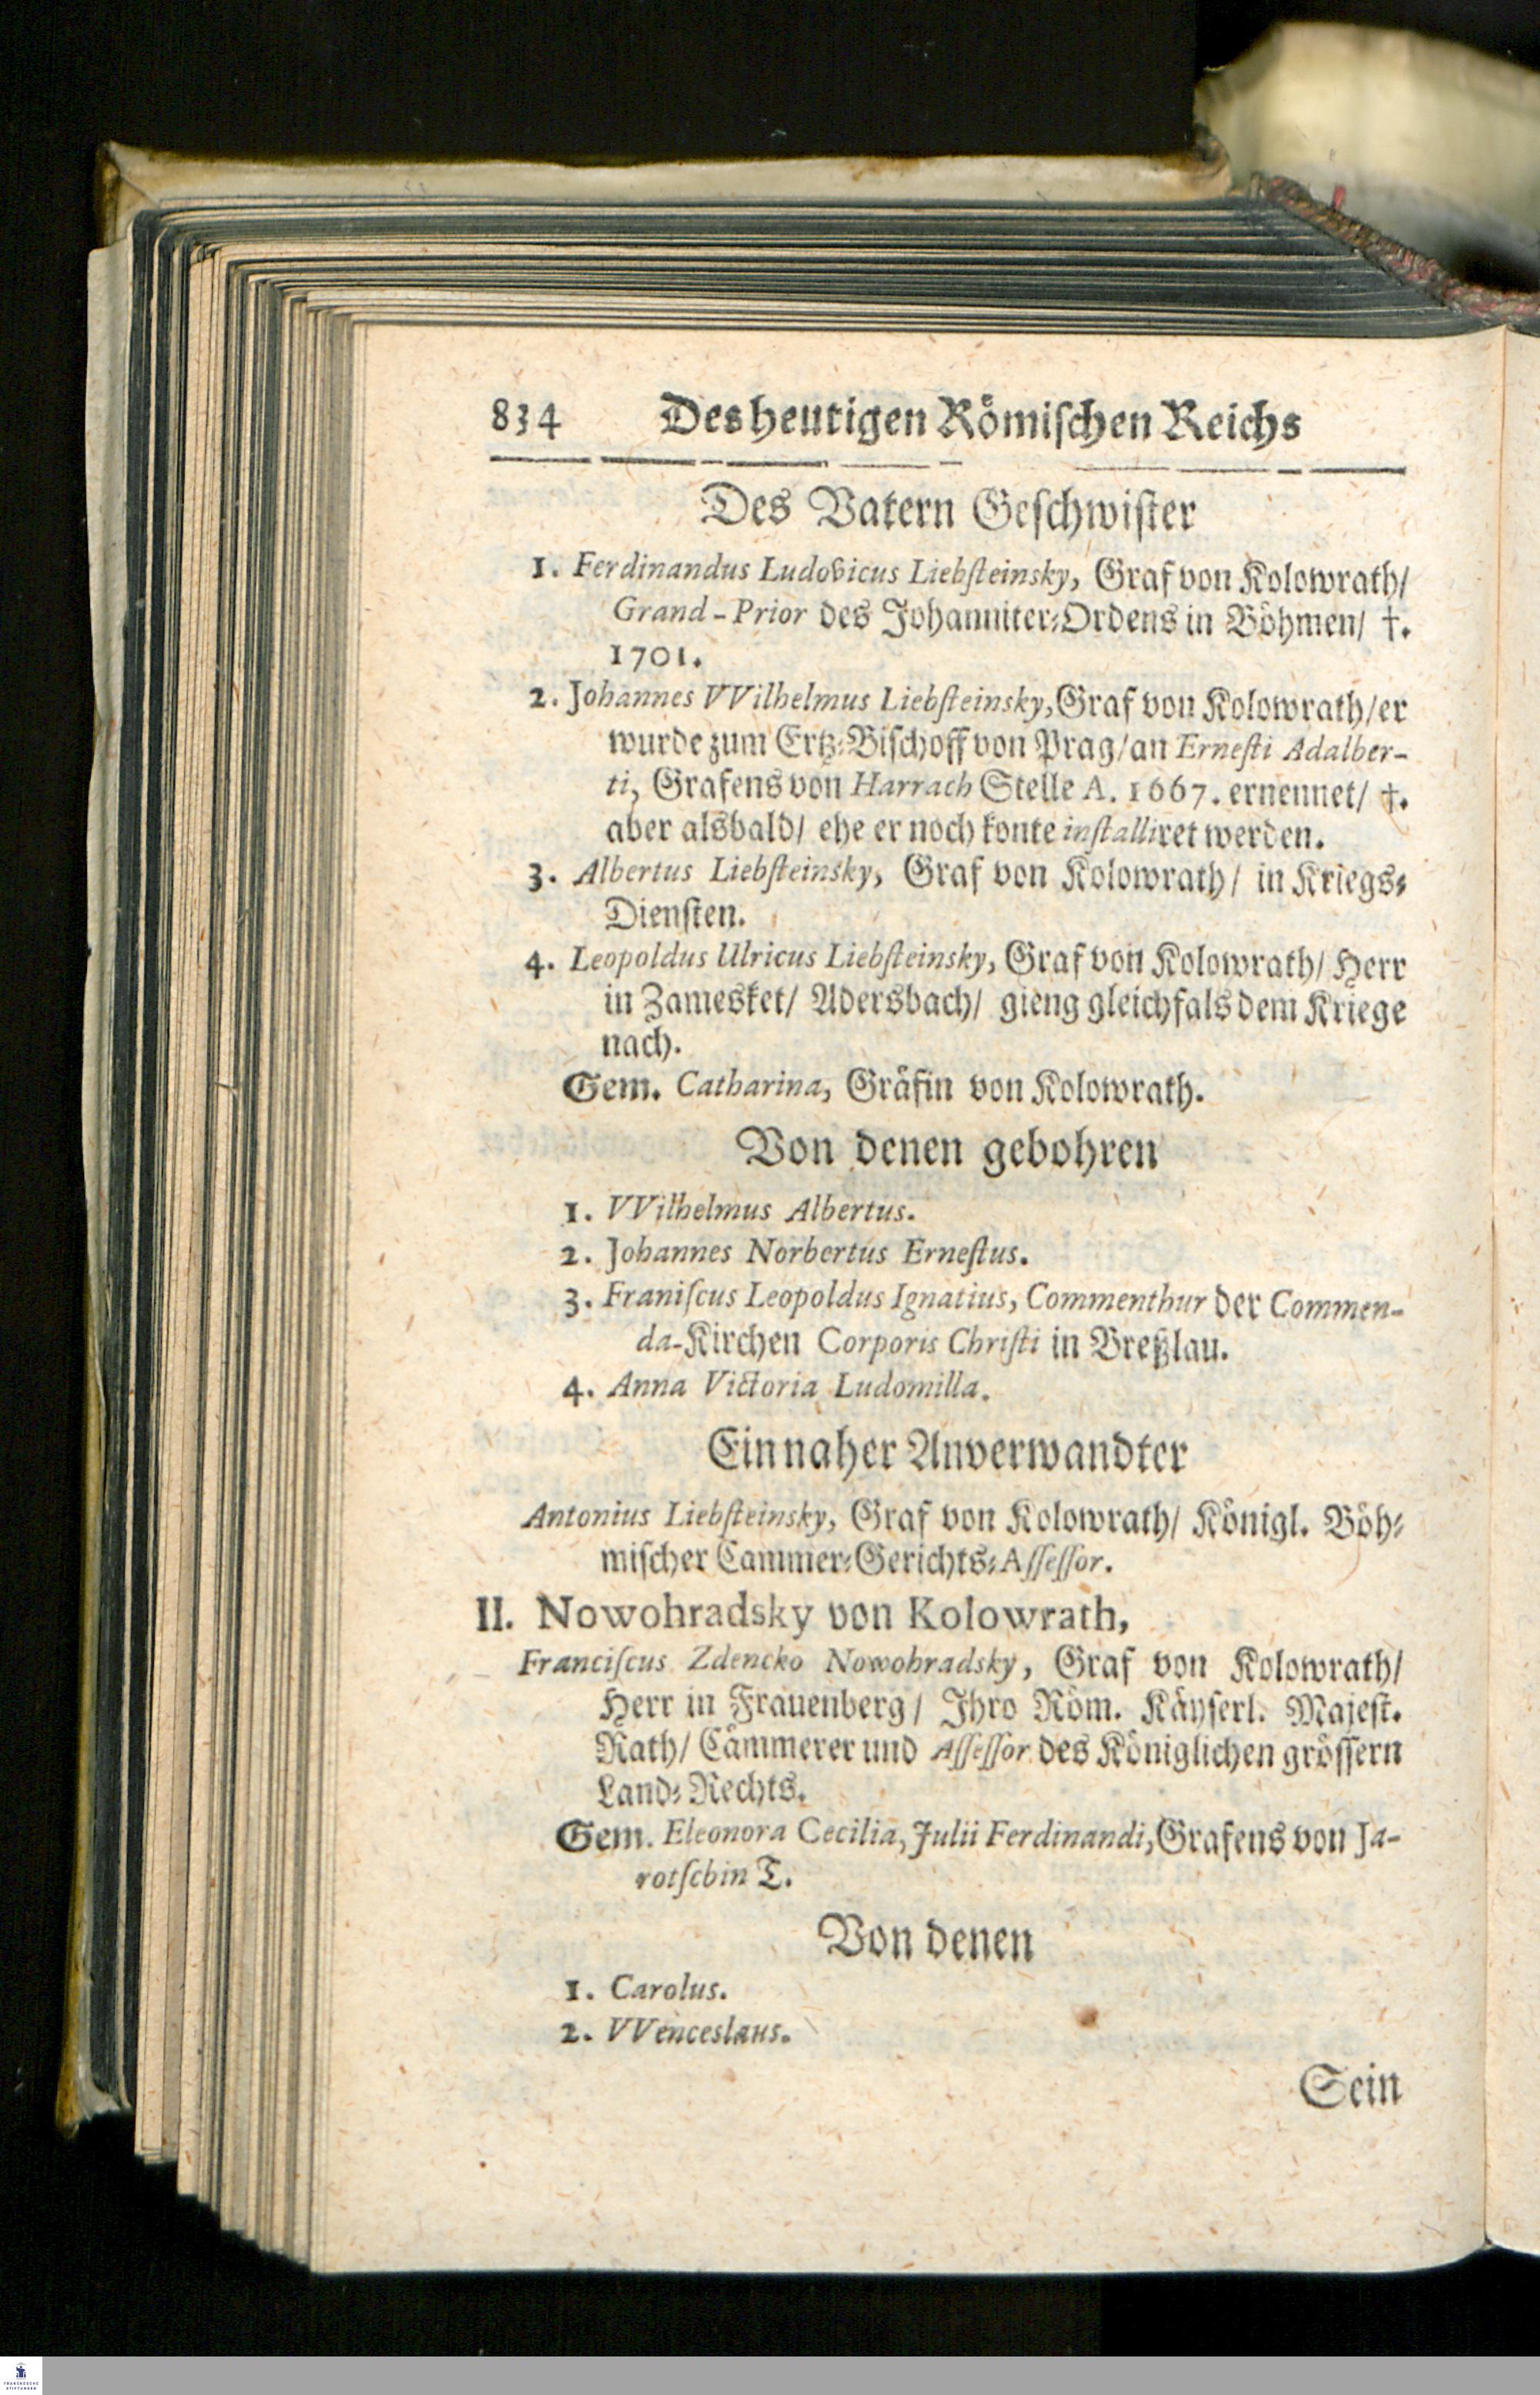 834 Des heutigen Römischen Reichs
Des Vatern Geschwister
1. Ferdinandus Ludovicus Liebsteinsky, Graf von Kolowrath/
Grand-Prior des Johanniter-Ordens in Böhmen/ †.
1701.
2. Johannes VVilhelmus Liebsteinsky, Graf von Kolowrath/ er
wurde zum Ertz-Bischoff von Prag/ an Ernesti Adalber-
ti, Grafens von Harrach Stelle A. 1667. ernennet/ †.
aber alsbald/ ehe er noch konte installiret werden.
3. Albertus Liebsteinsky, Graf von Kolowrath/ in Kriegs-
Diensten.
4. Leopoldus Ulricus Liebsteinsky, Graf von Kolowrath/ Herr
in Zamesket/ Adersbach/ gieng gleichfals dem Kriege
nach.
Gem. Catharina, Gräfin von Kolowrath.
Von denen gebohren
1. VVilhelmus Albertus.
2. Johannes Norbertus Ernestus.
3. Franiscus Leopoldus Ignatius, Commenthur der Commen-
da-Kirchen Corporis Christi in Breßlau.
4. Anna Victoria Ludomilla.
Ein naher Anverwandter
Antonius Liebsteinsky, Graf von Kolowrath/ Königl. Böh-
mischer Cammer-Gerichts-Assessor.
II. Nowohradsky von Kolowrath,
Franciscus Zdencko Nowohradsky, Graf von Kolowrath/
Herr in Frauenberg/ Ihro Röm. Käyserl. Majest.
Rath/ Cämmerer und Assessor des Königlichen grössern
Land-Rechts.
Gem. Eleonora Cecilia, Julii Ferdinandi, Grafens von Ja-
rotschin T.
Von denen
1. Carolus.
2. VVenceslaus.
Sein
FRANCKESCHE
STIFTUNGEN